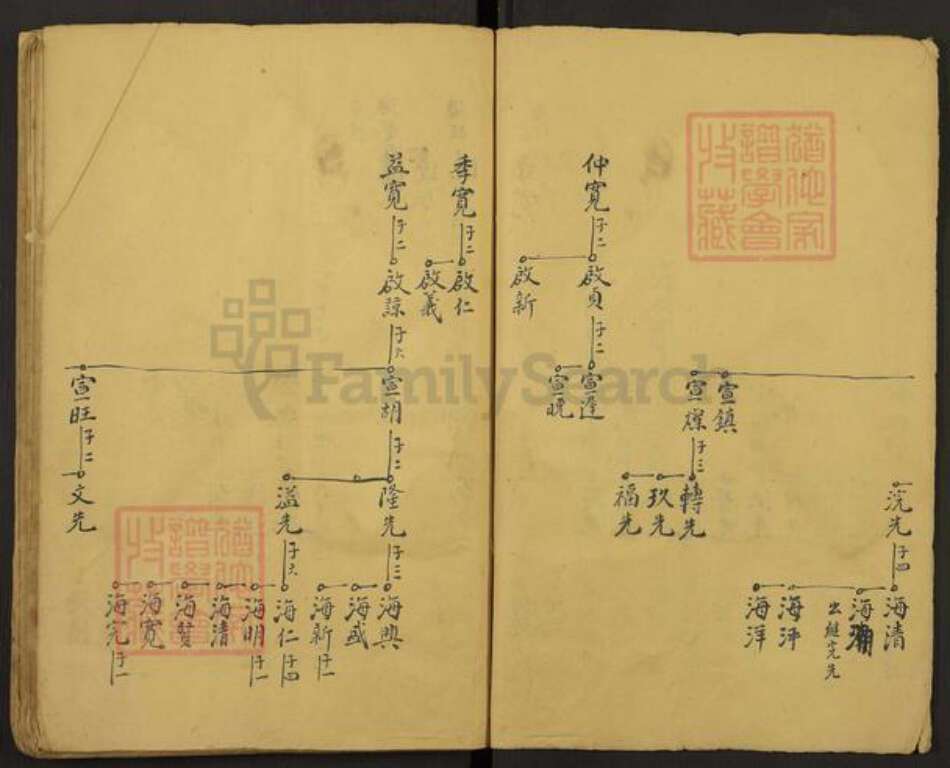 仲寬
子二
啟貞
啟新
子二
宣逢
宣曉
宣鎮
宣燦
子三
轉先
玖先
福先
浣先
子四
海清
海
出繼完先
海泙
海洋
季寬
子二
啟仁
啟義
益寬
子二
啟諒
子六
宣胡
宣旺
子二
文先
子二
隆先
溢先
子三
海興
海盛
海新
子一
子六
海仁
子四
海明
子一
海清
海贊
海寬
海完
子一
猶他家
譜學會
收藏
猶他家
譜學會
收藏
FamilySearch